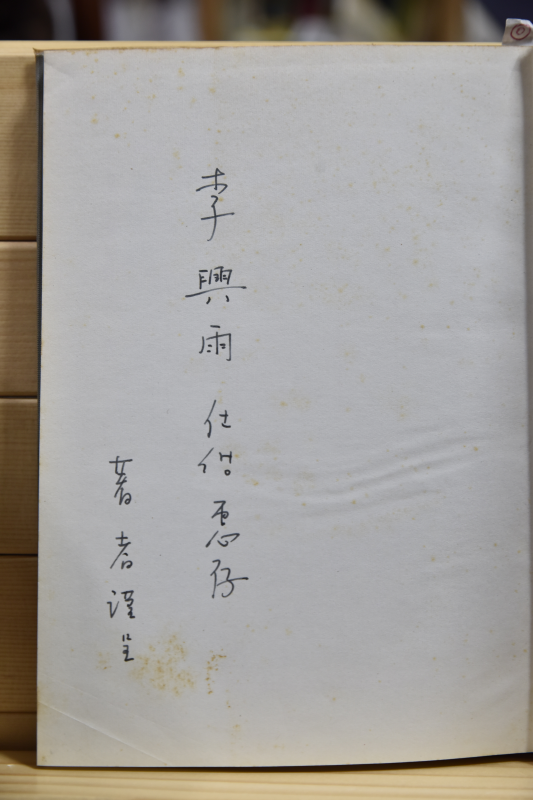 李興雨 惠存
著者 謹呈